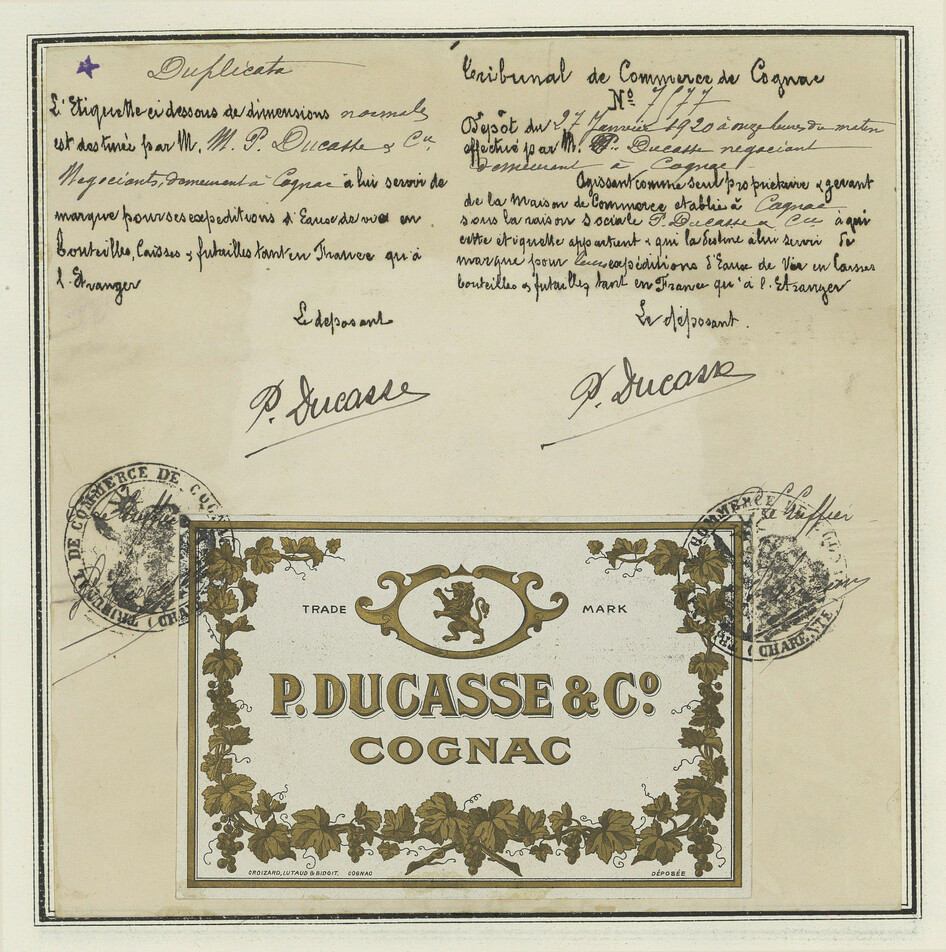 Duplicata
L'Etiquette ci dessous de dimensions normales
est destinée par M. M. P. Ducasse & Cie
Negociants, demeurant à Cognac à lui servir de
marque pour ses expeditions d'Eaux de vie en
bouteilles, Caisses & futailles tant en France qu'à
l'Etranger
Le deposant
P. Ducasse
Tribunal de Commerce de Cognac
No 7177
Dépôt du 27 Janvier 1920 à onze heures du matin
effectué par M. P. Ducasse negociant
demeurant à Cognac
Agissant comme seul propriétaire & gerant
de la Maison de Commerce etablie à Cognac
sous la raison sociale P. Ducasse & Cie à qui
cette etiquette appartient & qui la destine à lui servir de
marque pour leurs expéditions d'Eaux de Vie en Caisses
bouteilles & futailles, tant en France qu'à l'Etranger
Le déposant.
P. Ducasse
TRIBUNAL DE COMMERCE DE COGNAC
(CHARENTE)
Le Greffier
COMMERCE
(CHARENTE)
Le Greffier
TRADE MARK
P. DUCASSE & Co.
COGNAC
CROIZARD, LUTAUD & BIDOIT. COGNAC
DÉPOSÉE